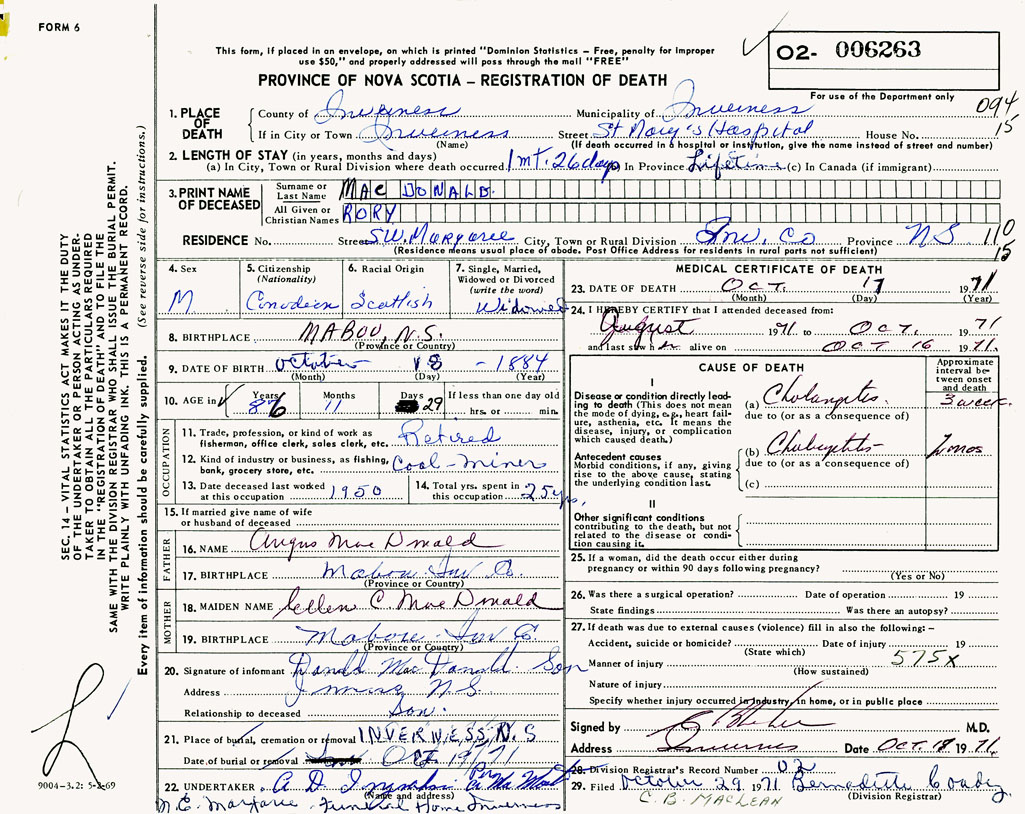 FORM 6
This form, if placed in an envelope, on which is printed "Dominion Statistics – Free, penalty for improper
use $50," and properly addressed will pass through the mail "FREE"
O2- 006263
PROVINCE OF NOVA SCOTIA – REGISTRATION OF DEATH
For use of the Department only
094
15
1. PLACE OF DEATH
County of Inverness Municipality of Inverness
If in City or Town Inverness Street St Mary's Hospital House No.
(Name) (If death occurred in a hospital or institution, give the name instead of street and number)
2. LENGTH OF STAY (in years, months and days)
(a) In City, Town or Rural Division where death occurred 1 mt. 26 days In Province Lifetime (c) In Canada (if immigrant)
3. PRINT NAME OF DECEASED
Surname or Last Name MAC DONALD
All Given or Christian Names RORY
RESIDENCE No. Street S.W. Margaree City, Town or Rural Division Inv. Co Province NS
110
15
(Residence means usual place of abode. Post Office Address for residents in rural parts not sufficient)
4. Sex
M
5. Citizenship
(Nationality)
Canadian
6. Racial Origin
Scottish
7. Single, Married,
Widowed or Divorced
(write the word)
Widowed
8. BIRTHPLACE MABOU, N.S.
(Province or Country)
9. DATE OF BIRTH October 18 - 1884
(Month) (Day) (Year)
10. AGE in
Years Months Days If less than one day old
86 11 29 hrs. or min.
OCCUPATION
11. Trade, profession, or kind of work as
fisherman, office clerk, sales clerk, etc. Retired
12. Kind of industry or business, as fishing,
bank, grocery store, etc. Coal-Miner
13. Date deceased last worked
at this occupation 1950
14. Total yrs. spent in
this occupation 25 yrs.
15. If married give name of wife
or husband of deceased
FATHER
16. NAME Angus MacDonald
17. BIRTHPLACE Mabou Inv Co.
(Province or Country)
MOTHER
18. MAIDEN NAME Ellen C. MacDonald
19. BIRTHPLACE Mabou Inv Co
(Province or Country)
20. Signature of informant Donald MacDonald Son
Address Inverness N.S.
Relationship to deceased Son.
21. Place of burial, cremation or removal INVERNESS, N.S
Date of burial or removal Oct 19/71
22. UNDERTAKER A. D. Per
(Name and address)
N.E. Margaree Funeral Home Inverness
MEDICAL CERTIFICATE OF DEATH
23. DATE OF DEATH OCT. 17 1971
(Month) (Day) (Year)
24. I HEREBY CERTIFY that I attended deceased from:
August 1971 to OCT. 1971
and last saw h alive on OCT 16 1971.
CAUSE OF DEATH
Approximate
interval be-
tween onset
and death
I
Disease or condition directly lead-
ing to death (This does not mean
the mode of dying, e.g., heart fail-
ure, asthenia, etc. It means the
disease, injury, or complication
which caused death.)
(a) Cholangitis. 3 week.
due to (or as a consequence of)
Antecedent causes
Morbid conditions, if any, giving
rise to the above cause, stating
the underlying condition last.
(b) mos
due to (or as a consequence of)
(c)
II
Other significant conditions
contributing to the death, but not
related to the disease or condi-
tion causing it.
25. If a woman, did the death occur either during
pregnancy or within 90 days following pregnancy?
(Yes or No)
26. Was there a surgical operation? Date of operation 19
State findings Was there an autopsy?
27. If death was due to external causes (violence) fill in also the following: –
Accident, suicide or homicide? Date of injury 19
(State which)
575X
Manner of injury
(How sustained)
Nature of injury
Specify whether injury occurred in industry, in home, or in public place
Signed by M.D.
Address Inverness Date OCT. 18 1971.
28. Division Registrar's Record Number 02
29. Filed October 29 1971 Bernadette Coady
C. B. MACLEAN (Division Registrar)
SEC. 14 – VITAL STATISTICS ACT MAKES IT THE DUTY
OF THE UNDERTAKER OR PERSON ACTING AS UNDER-
TAKER TO OBTAIN ALL THE PARTICULARS REQUIRED
IN THE "REGISTRATION OF DEATH" AND TO FILE THE
SAME WITH THE DIVISION REGISTRAR WHO SHALL ISSUE THE BURIAL PERMIT.
WRITE PLAINLY WITH UNFADING INK. THIS IS A PERMANENT RECORD.
Every item of information should be carefully supplied. (See reverse side for instructions.)
9004-3.2: 5-2-69